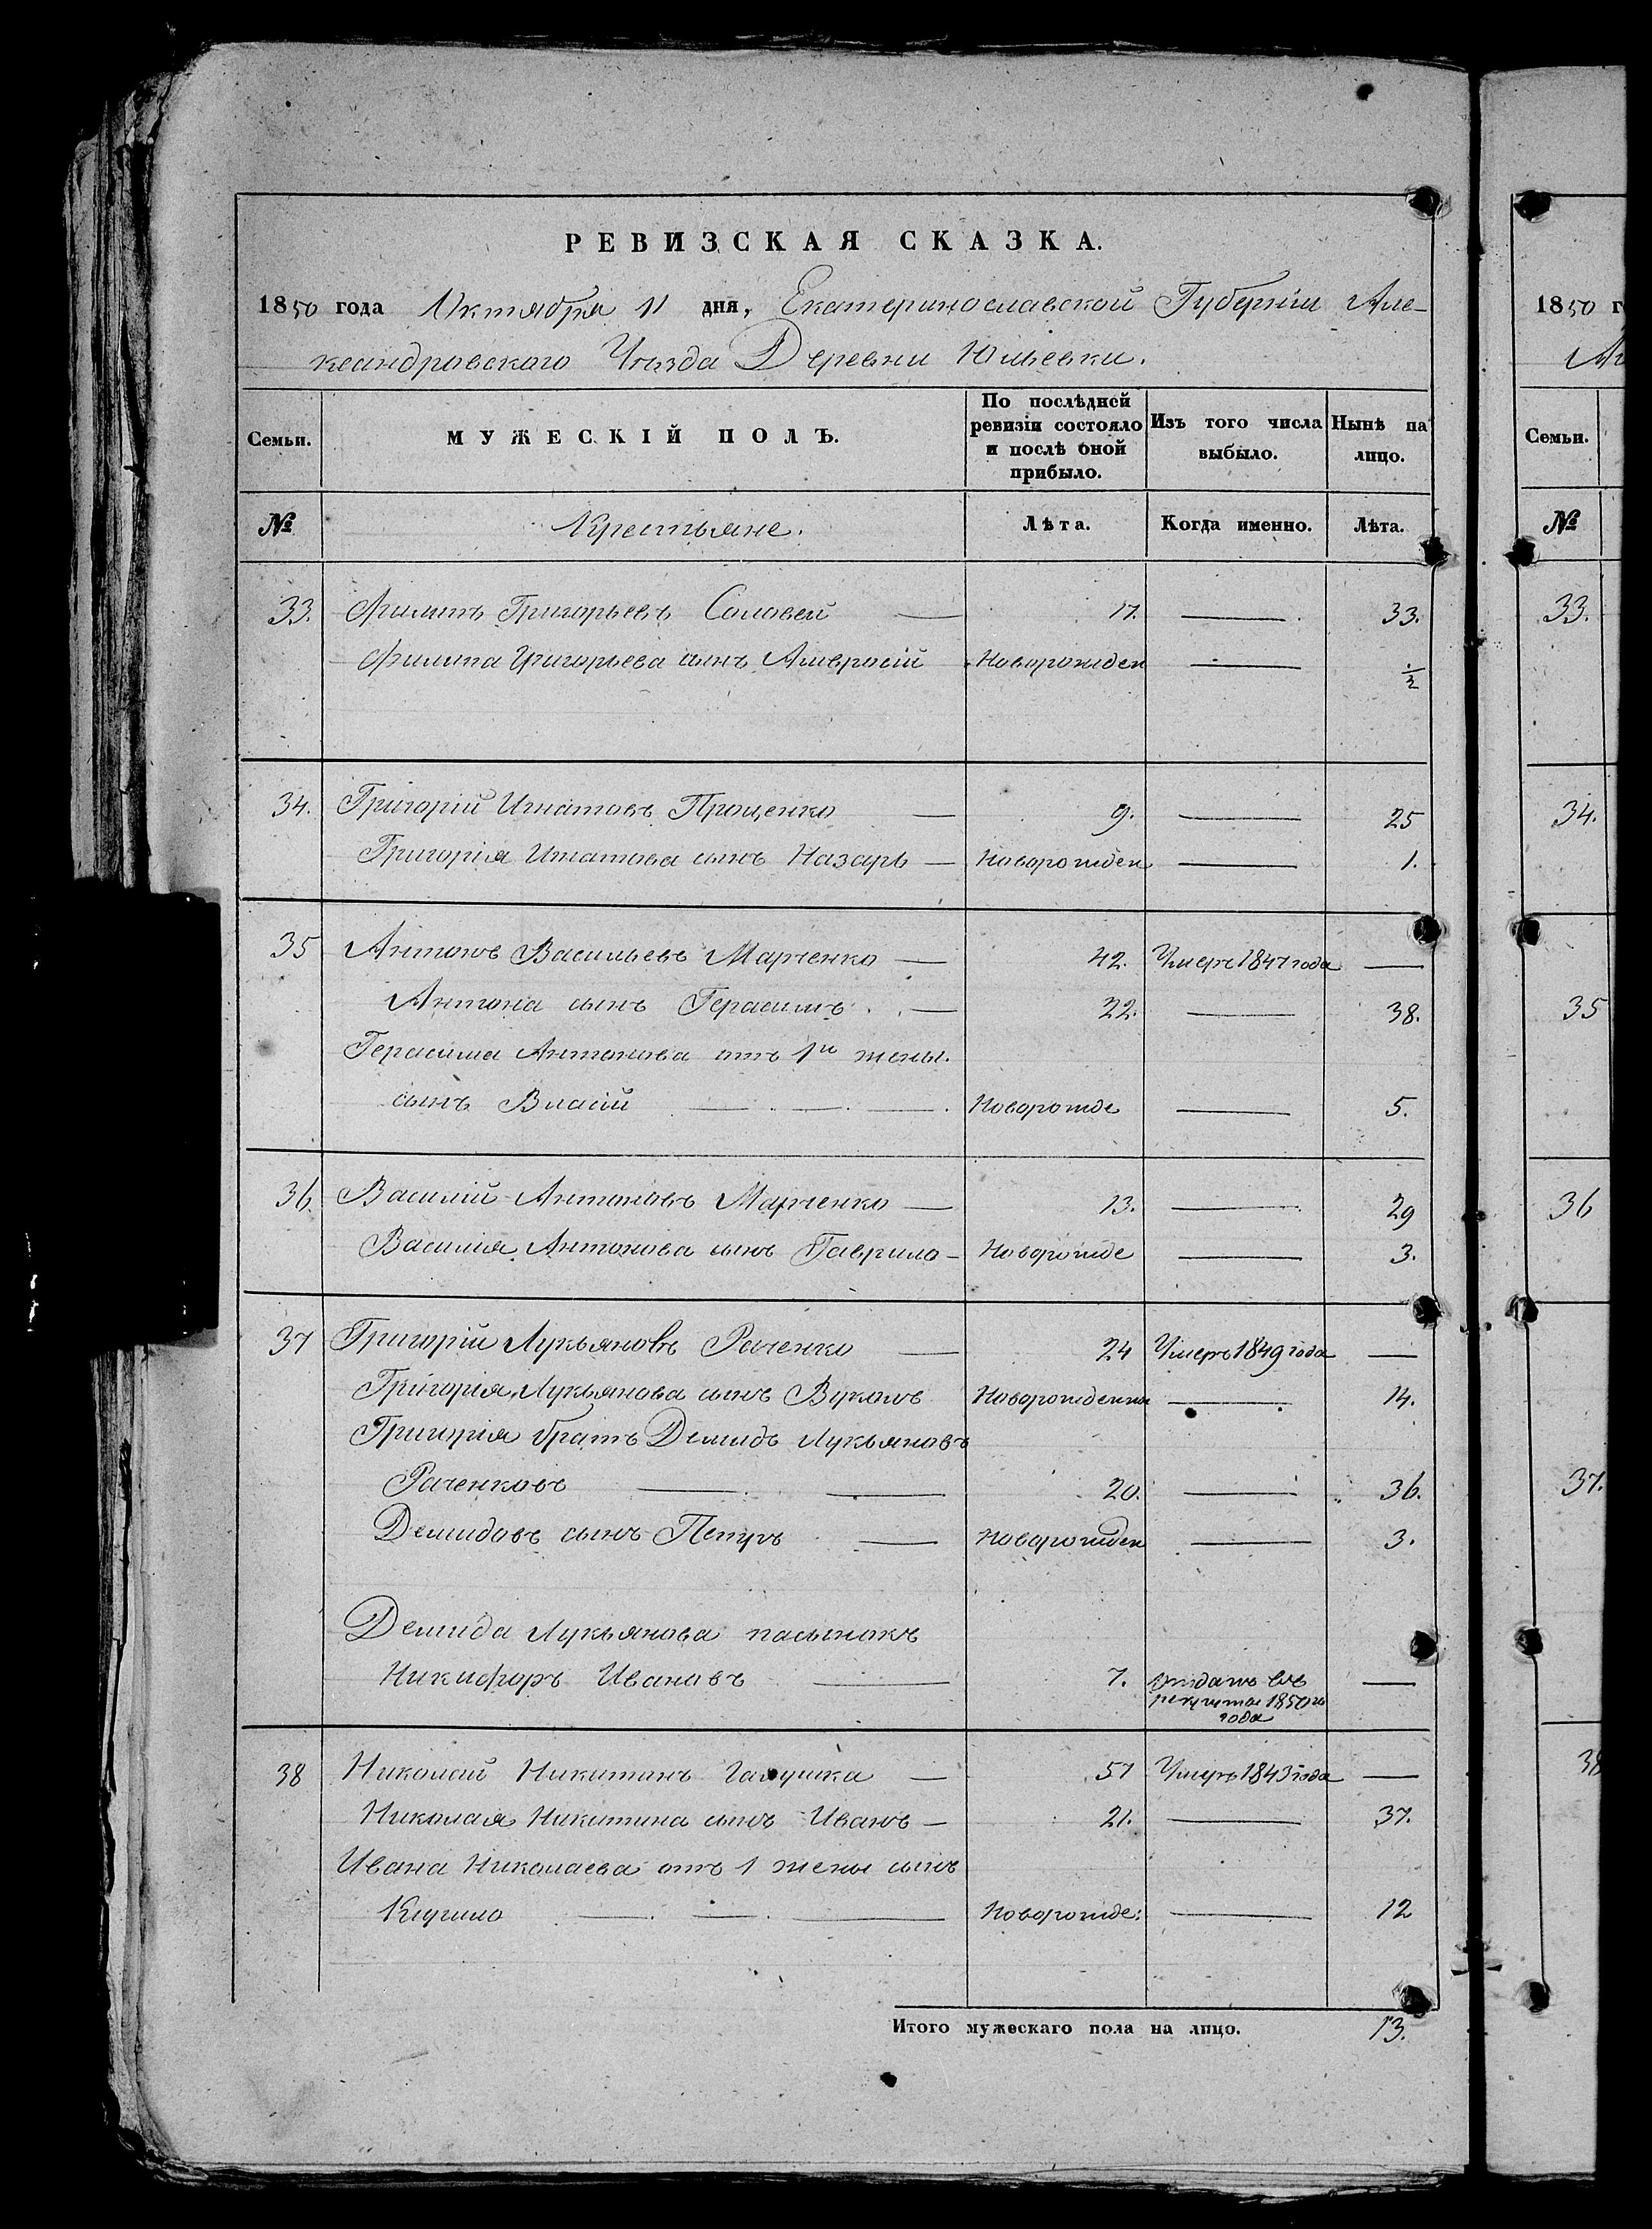 РЕВИЗСКАЯ СКАЗКА.
1850 года Октября 11 дня, Екатеринославской Губерніи Але-
ксандровскаго Уѣзда Деревни Юльевки.
Семьи. МУЖЕСКІЙ ПОЛЪ. По послѣдней ревизіи состояло и послѣ оной прибыло. Изъ того числа выбыло. Нынѣ на лицо.
№ Крестьяне. Лѣта. Когда именно. Лѣта.
33. Филипъ Григорьевъ Соловей — 17. — 33.
Филипа Григорьева сынъ Амвросій Новорожден — ½
34. Григорій Игнатовъ Проценко — 9. — 25
Григорія Игнатова сынъ Назаръ — Новорожден — 1.
35 Антонъ Васильевъ Марченко — 42. Умеръ 1847 года —
Антона сынъ Герасимъ — 22. — 38.
Герасима Антонова отъ 1й жены.
сынъ Власій — — — Новорожде — 5.
36. Василій Антоновъ Марченко — 13. — 29
Василія Антонова сынъ Гаврило — Новорожде — 3.
37 Григорій Лукьяновъ Раченко — 24 Умеръ 1849 года —
Григорія Лукьянова сынъ Вуколъ Новорожденны — 14.
Григорія братъ Демидъ Лукьяновъ
Раченковъ — — 20. — 36.
Демидовъ сынъ Петръ — Новорожден — 3.
Демида Лукьянова пасынокъ
Никифоръ Ивановъ — 7. отданъ въ —
рекруты 1850го
года
38 Николай Никитинъ Галушка — 51 Умеръ 1843 года —
Николая Никитина сынъ Иванъ — 21. — 37.
Ивана Николаева отъ 1 жены сынъ
Кирило — — — Новорожде: — 12
Итого мужескаго пола на лицо. 13.
1850 г
Семьи.
№
33.
34.
35
36
37.
38